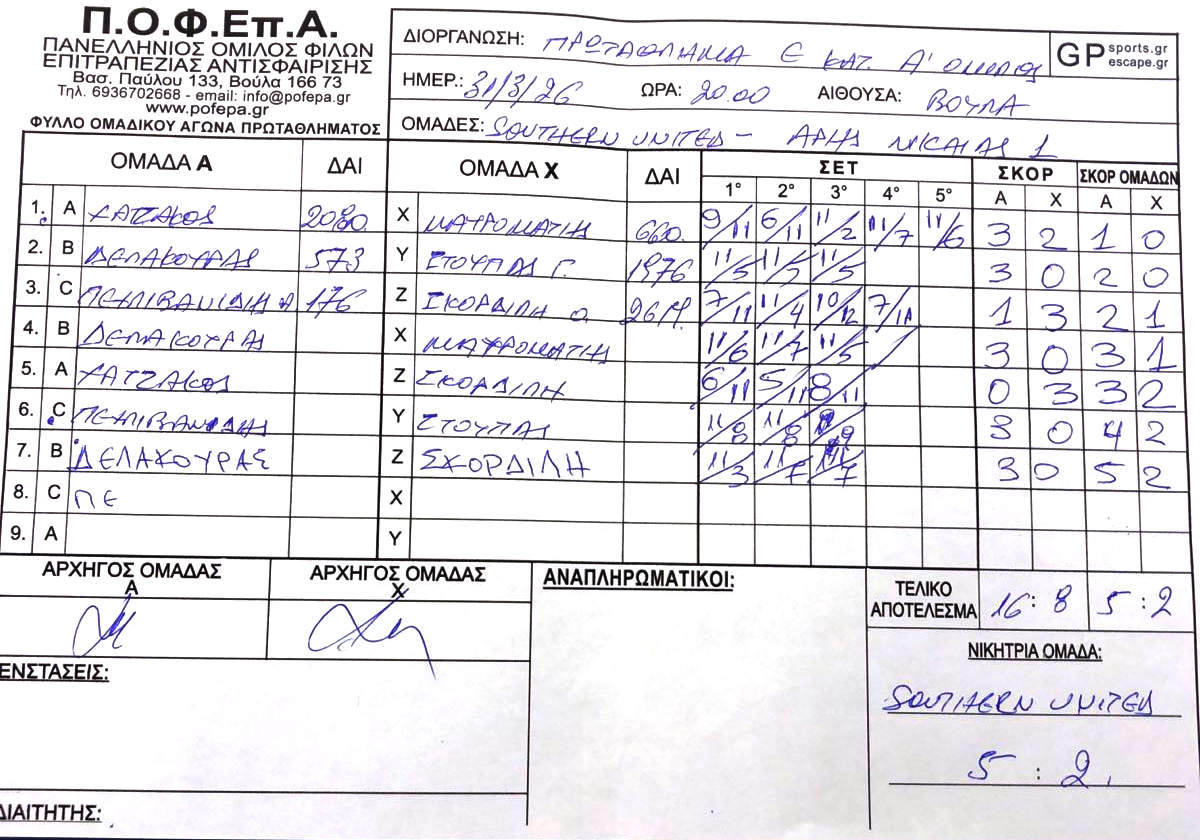 Π.Ο.Φ.Επ.Α.
ΠΑΝΕΛΛΗΝΙΟΣ ΟΜΙΛΟΣ ΦΙΛΩΝ
ΕΠΙΤΡΑΠΕΖΙΑΣ ΑΝΤΙΣΦΑΙΡΙΣΗΣ
Βασ. Παύλου 133, Βούλα 166 73
Τηλ. 6936702668 - email: info@pofepa.gr
www.pofepa.gr
ΦΥΛΛΟ ΟΜΑΔΙΚΟΥ ΑΓΩΝΑ ΠΡΩΤΑΘΛΗΜΑΤΟΣ
ΔΙΟΡΓΑΝΩΣΗ: ΠΡΩΤΑΘΛΗΜΑ Ε ΚΑΤ. Α' ΟΜΙΛΟΣ
GP sports.gr
escape.gr
ΗΜΕΡ.: 31/3/26 ΩΡΑ: 20.00 ΑΙΘΟΥΣΑ: ΒΟΥΛΑ
ΟΜΑΔΕΣ: SOUTHERN UNITED - ΑΡΗΣ ΝΙΚΑΙΑΣ 1
ΟΜΑΔΑ Α ΔΑΙ ΟΜΑΔΑ Χ ΔΑΙ ΣΕΤ ΣΚΟΡ ΣΚΟΡ ΟΜΑΔΩΝ
1° 2° 3° 4° 5° Α Χ Α Χ
1. Α ΧΑΤΖΑΚΟΣ 2080. Χ ΜΑΥΡΟΜΑΤΗΣ 660. 9/11 6/11 11/2 11/7 11/6 3 2 1 0
2. Β ΔΕΛΑΚΟΥΡΑΣ 573 Y ΣΤΟΥΠΑΣ Γ. 1976 11/5 11/7 11/5 3 0 2 0
3. C ΠΕΧΛΙΒΑΝΙΔΗΣ Α 176 Z ΣΚΟΡΔΙΛΗ Θ. 7/11 11/4 10/12 7/11 1 3 2 1
4. Β ΔΕΛΑΚΟΥΡΑΣ Χ ΜΑΥΡΟΜΑΤΗΣ 11/6 11/7 11/5 3 0 3 1
5. Α ΧΑΤΖΑΚΟΣ Z ΣΚΟΡΔΙΛΗ 6/11 5/11 8/11 0 3 3 2
6. C ΠΕΧΛΙΒΑΝΙΔΗΣ Y ΣΤΟΥΠΑΣ 11/8 11/8 3 0 4 2
7. Β ΔΕΛΑΚΟΥΡΑΣ Z ΣΚΟΡΔΙΛΗ 11/3 11/7 11/7 3 0 5 2
8. C ΠΕ Χ
9. Α Y
ΑΡΧΗΓΟΣ ΟΜΑΔΑΣ Α
ΑΡΧΗΓΟΣ ΟΜΑΔΑΣ Χ
ΑΝΑΠΛΗΡΩΜΑΤΙΚΟΙ:
ΤΕΛΙΚΟ ΑΠΟΤΕΛΕΣΜΑ 16 : 8 5 : 2
ΝΙΚΗΤΡΙΑ ΟΜΑΔΑ:
SOUTHERN UNITED
5 : 2.
ΕΝΣΤΑΣΕΙΣ:
ΔΙΑΙΤΗΤΗΣ: